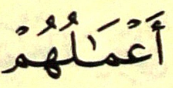 أَعْمَٰلُهُمْ